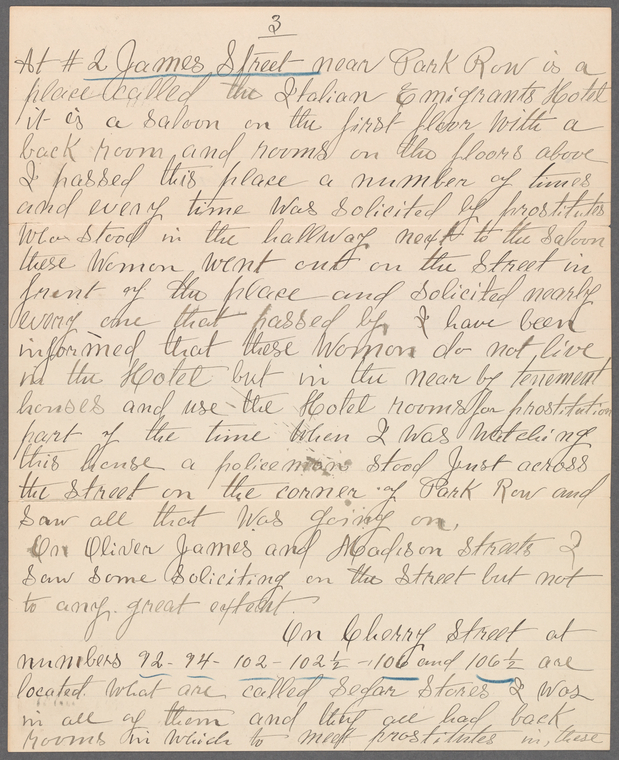 3
At # 2 James Street near Park Row is a
place called the Italian Emigrants Hotel
it is a saloon on the first floor with a
back room and rooms on the floors above
I passed this place a number of times
and every time was solicited by prostitutes
who stood in the hallway next to the saloon
these women went out on the street in
front of the place and solicited nearly
every one that passed by I have been
informed that these women do not live
in the Hotel but in the near by tenement
houses and use the Hotel rooms for prostitution
part of the time when I was watching
this house a policeman stood just across
the street on the corner of Park Row and
saw all that was going on.
On Oliver James and Madison Streets I
saw some soliciting on the street but not
to any great extent.
On Cherry Street at
numbers 92 - 94 - 102 - 102½ - 106 and 106½ are
located what are called Segar Stores I was
in all of them and they all had back
rooms in which to meet prostitutes in, these